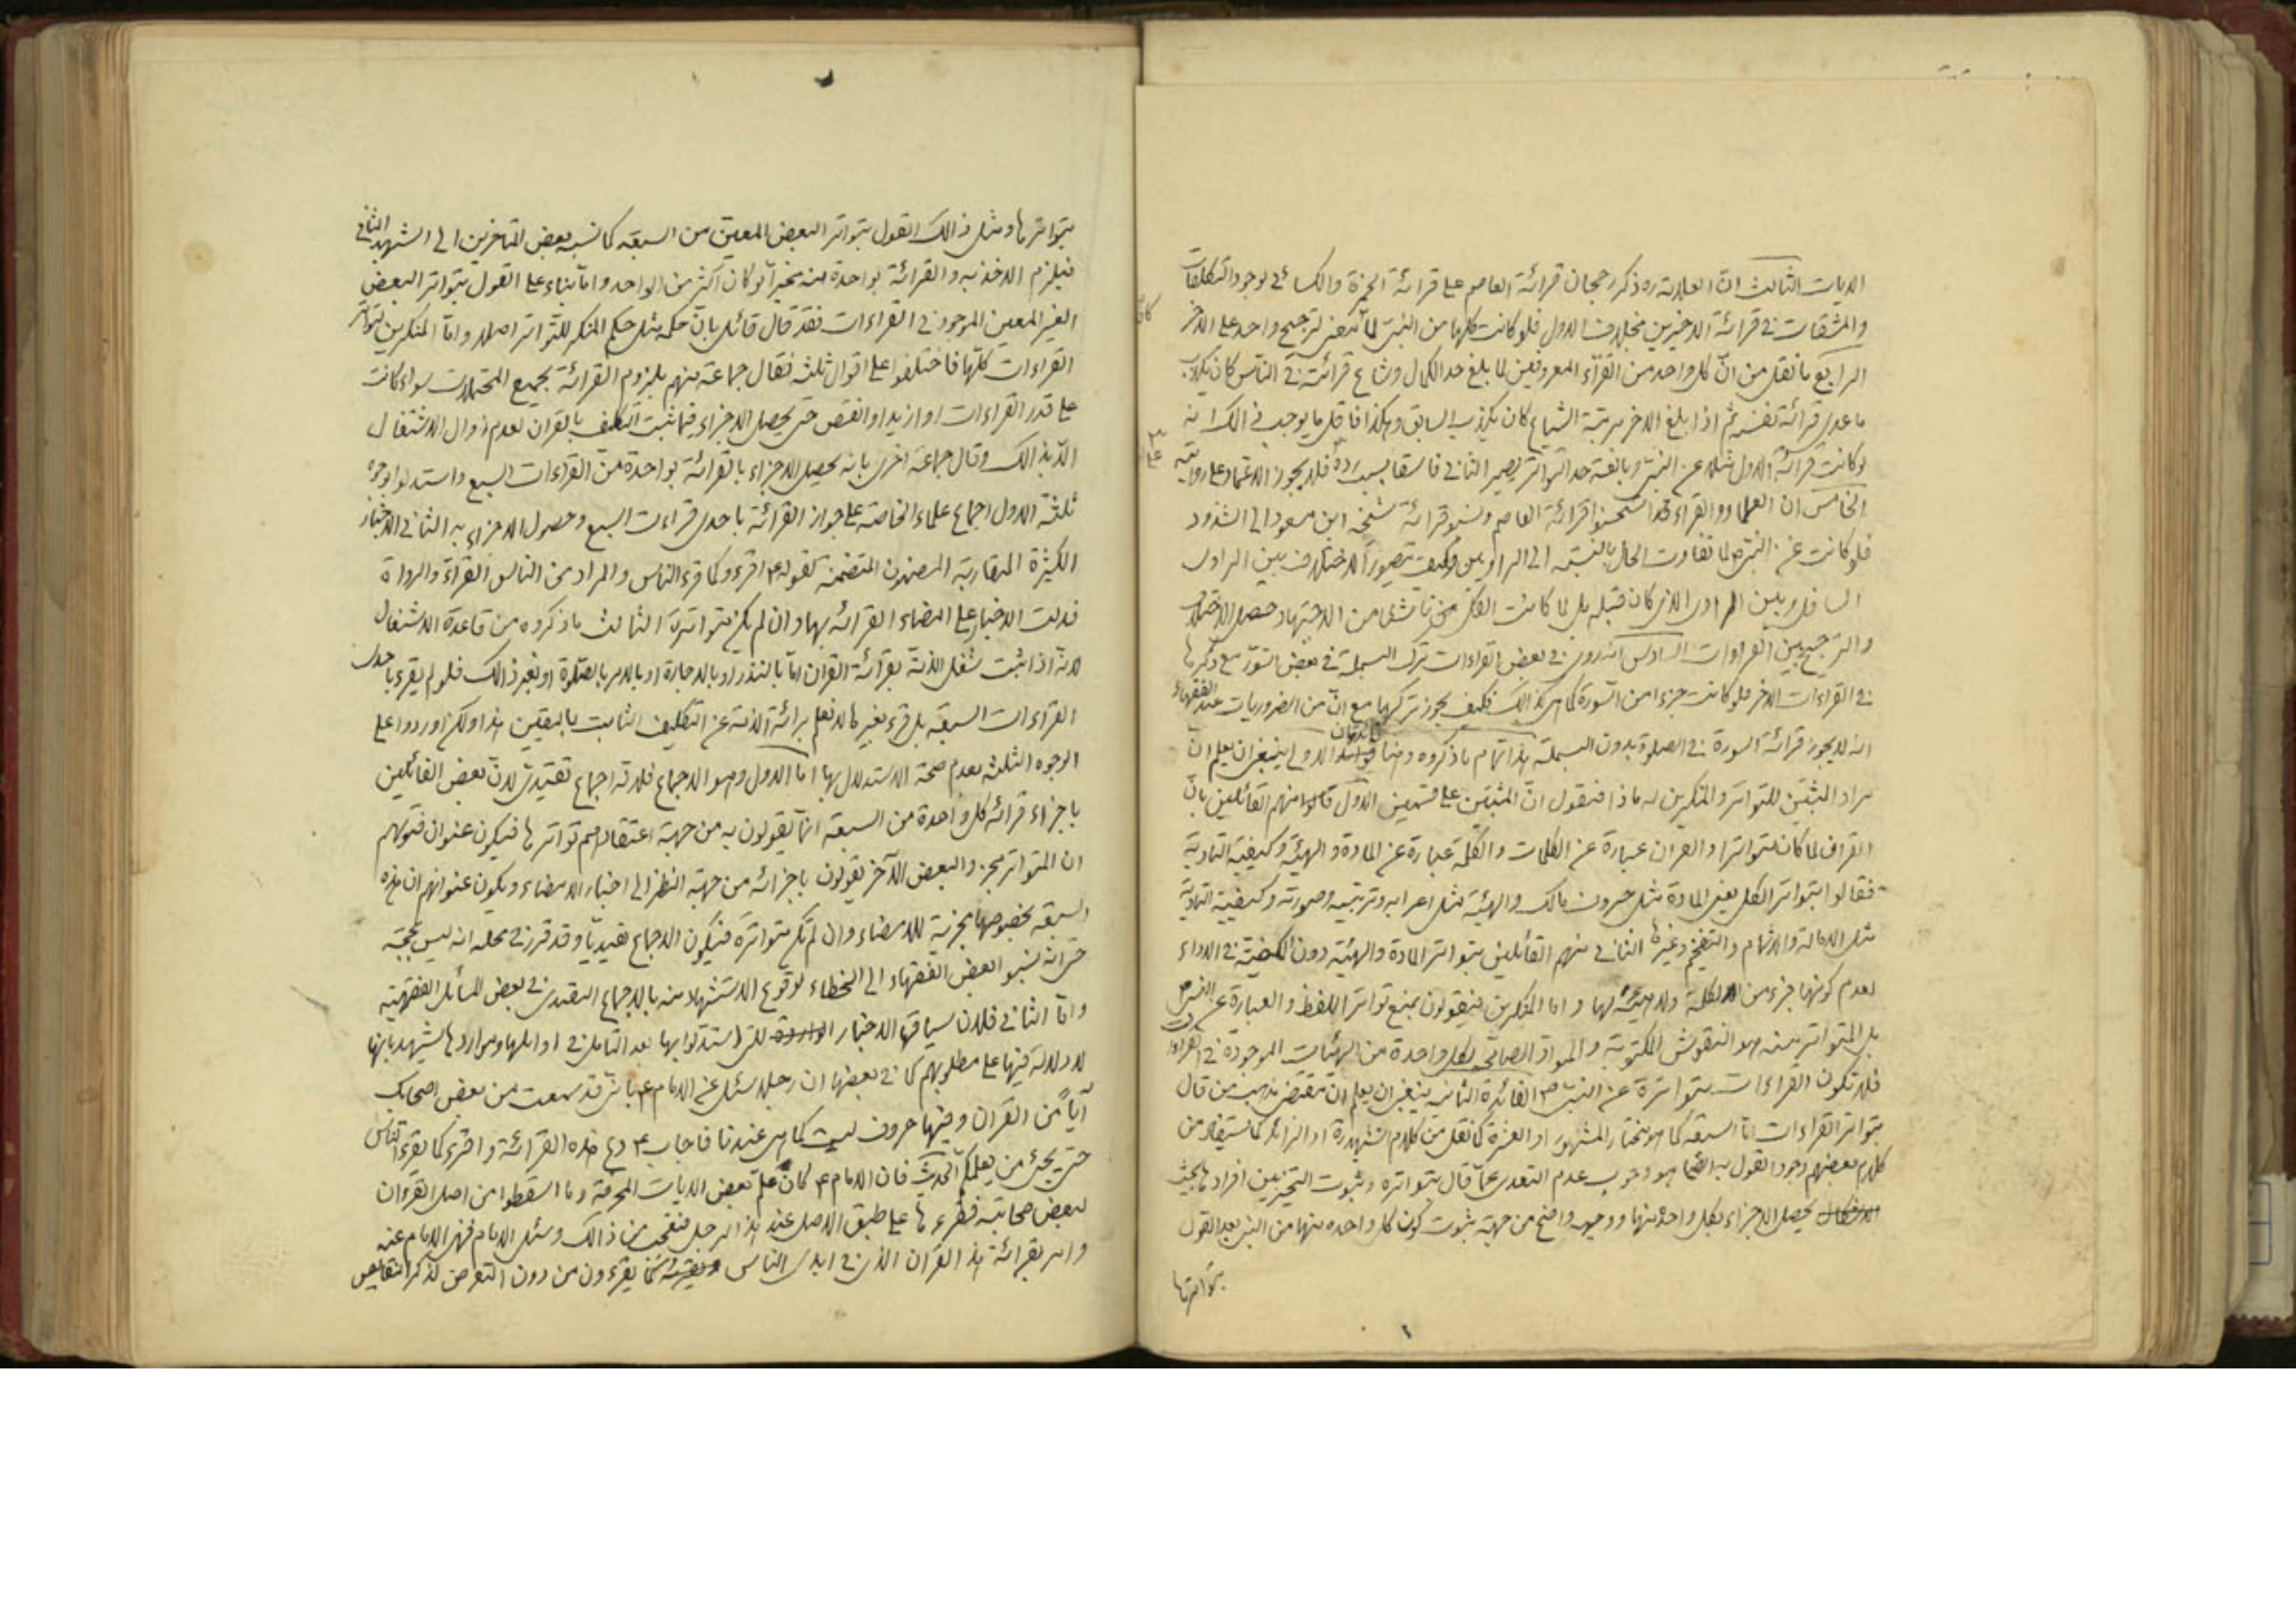 الايات الثالث ان العلامة ره ذكر رجحان قرائة العاصم على قرائة الحمزة والكسائى لوجود التكلفات
والمشقات فى قرائة الاخيرين بخلاف الاول فلو كانت كلها من النبى لما معنى لترجيح واحد على الاخر
الرابع ما نقل من ان كل واحد من القراء المعروفين لما بلغ حد الكمال وشاع قرائته فى الناس كان يكذب
ما عدى قرائة نفسه ثم اذا بلغ الاخر مرتبة الشياع كان يكذب السابق وهكذا فاقل ما يوجب ذالك انه
لو كانت قرائة الاول مثلا عن النبى وبالغة حد التواتر يصير الثانى فاسقا بسبب رده فلا يجوز الاعتماد على روايته
الخامس ان العلماء والقراء قد استحسنوا قرائة العاصم ونسبو قرائة شيخه ابن مسعود الى الشذوذ
فلو كانت عن النبى لما تفاوت الحال بالنسبة الى الراويين وكيف تصور الاختلاف بين الراوى
السافل وبين الراوى الذى كان قبله بل لما كانت الكل ناشى من الاجتهاد حصل الاختلاف
والترجيح بين القراءات السادس انه روى فى بعض القراءات ترك البسملة فى بعض السور مع ذكرها
فى القراءات الاخر فلو كانت جزءا من السورة كما هى كذالك فكيف يجوز تركها مع ان من الضروريات عند الفقهاء
انه لا يجوز قرائة السورة فى الصلوة بدون البسملة هذا تمام ما ذكروه وهنا فائدتان الاولى ينبغى ان يعلم ان
مراد المثبتين للتواتر والمنكرين له ماذا فنقول ان المثبتين على قسمين الاول قالوا منهم القائلين بان
القران لما كان متواترا والقران عبارة عن الكلمات والكلمة عبارة عن المادة والهيئة وكيفية التادية
فقالوا بتواتر الكل يعنى المادة مثل حروف مالك والهيئة مثل اعرابه وترتيبه وصورته وكيفية التادية
مثل الامالة والاشمام والتفخيم وغيرها الثانى منهم القائلين بتواتر المادة والهيئة دون الكيفية فى الاداء
لعدم كونها جزء من الكلمة ولا هيئة لها واما المنكرين فيقولون بمنع تواتر اللفظ والعبارة عن النبى ص
بل المتواتر منه هو النقوش المكتوبة والمواد الصالحة لكل واحدة من الهيئات الموجودة فى القراءات
فلا تكون القراءات متواترة عن النبى ص الفائدة الثانية ينبغى ان يعلم ان مقتضى مذهب من قال
بتواتر القراءات اما السبعة كما هو مختار المشهور او العشرة كما نقل من كلام الشهيد ره او الزائد كما يستفاد من
كلام بعضهم وجود القول به ايضا هو وجوب عدم التعدى عما قال بتواتره وثبوت التخيير بين افرادها بحيث
يحصل الاجزاء بكل واحد منها ووجهه واضح من جهة ثبوت كون كل واحده منها من النبى بعد القول
بتواترها
بتواترها ومثل ذالك القول بتواتر البعض المعين من السبعة كما نسبه بعض المتاخرين الى الشهيد الثانى
فيلزم الاخذ به والقرائة بواحدة منه مخيرا لو كان اكثر من الواحد واما بناء على القول بتواتر البعض
الغير المعين الموجود فى القراءات فقد قال قائل بان حكمه مثل حكم المنكر للتواتر اصلا واما المنكرين لتواتر
القراءات كلها فاختلفوا على اقوال ثلثة فقال جماعة منهم بلزوم القرائة بجميع المحتملات سواء كانت
على قدر القراءات او ازيد او انقص حتى يحصل الاجزاء فيما ثبت التكليف بالقران لعدم زوال الاشتغال
الا بذالك وقال جماعة اخرى بانه يحصل الاجزاء بالقرائة بواحدة من القراءات السبع واستدلوا بوجوه
ثلثة الاول اجماع علماء الخاصة على جواز القرائة باحدى قراءات السبع وحصول الاجزاء به الثانى الاخبار
الكثيرة المتقاربة المضمون المتضمنة لقوله ع اقرء وكما قرء الناس والمراد من الناس القراء والرواة
فدلت الاخبار على امضاء القرائة بها وان لم يكن متواترة الثالث ما ذكروه من قاعدة الاشتغال
لانه اذا ثبت شغل الذمة بقرائة القران اما بالنذر او بالاجارة او بالامر بالصلوة او بغير ذالك فلو لم يقرء باحدى
القراءات السبعة بل قرء بغيرها لا نعلم برائة الذمة عن التكليف الثابت باليقين هذا ولكن اوردوا على
الوجوه الثلثة بعدم صحة الاستدلال بها اما الاول وهو الاجماع فلانه اجماع تقييدى لان بعض القائلين
باجزاء قرائة كل واحدة من السبعة انما يقولون به من جهة اعتقادهم تواترها فيكون عنوان فتويهم
ان المتواتر مجز والبعض الاخر يقولون باجزائه من جهة النظر الى اخبار الامضاء ويكون عنوانهم ان هذه
السبعة بخصوصها مجزية للامضاء وان لم تكن متواترة فيكون الاجماع تقييديا وقد قرر فى محله انه ليس بحجة
حتى انه نسبو البعض الفقهاء الى الخطاء لوقوع الاستشهاد منه بالاجماع التقييدى فى بعض المسائل الفقهية
واما الثانى فلان سياق الاخبار الواردة التى استدلوا بها بعد التامل فى اوايلها ومواردها يشهد بانها
لا دلالة فيها على مطلوبهم كما فى بعضها ان رجلا سئل عن الامام ع بانى قد سمعت من بعض اصحابك
آيا من القران وفيها حروف ليست كما هى عندنا فاجاب ع دع هذه القرائة و اقرء كما يقرء الناس
حتى يجئ من يعلمكم الحديث فان الامام ع كان علم بعض الايات المحرفة وما اسقطوا من اصل القرءان
لبعض صحابته فقرءها على طبق الاصل عند هذا الرجل فتعجب من ذالك وسئل الامام فنهى الامام عنه
وامر بقرائة هذا القران الذى فى ايدى الناس يقرءون من دون التعرض لذكر النقايص